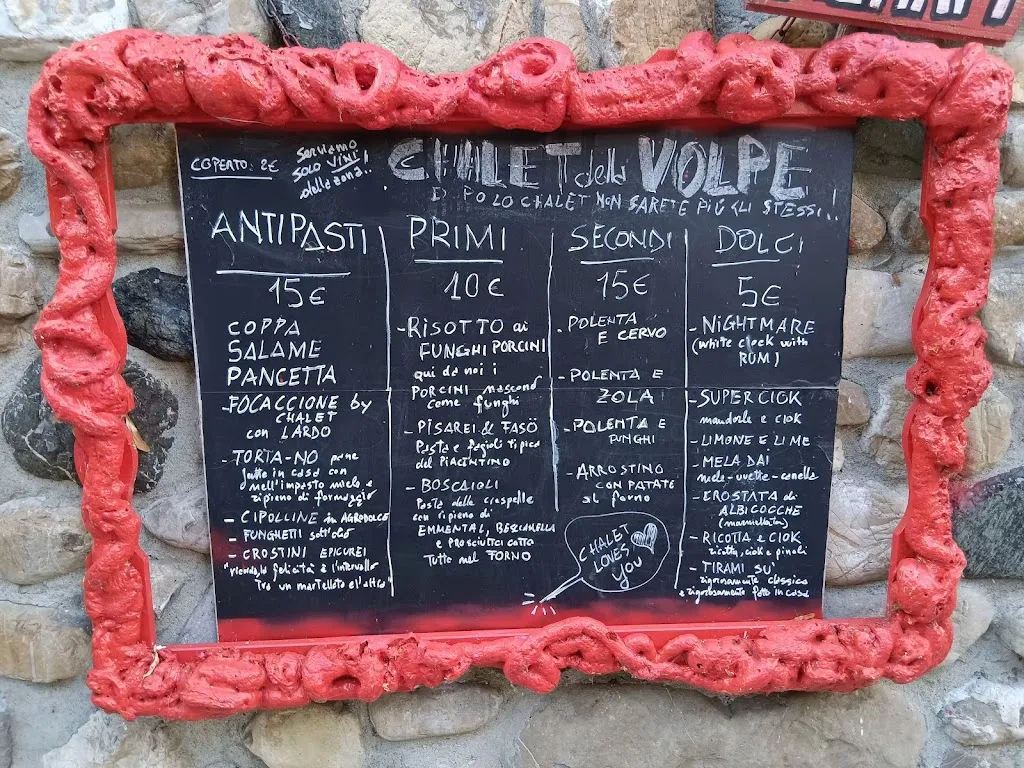 COPERTO: 2€
SERVIAMO
SOLO VINI
della zona..!
CHALET della VOLPE
DOPO LO CHALET NON SARETE PIÙ GLI STESSI..!
ANTIPASTI
15€
COPPA
SALAME
PANCETTA
-FOCACCIONE by
CHALET
con LARDO
-TORTA-NO pane
fatto in casa con
nell'impasto miele e
ripieno di formaggio
- CIPOLLINE in AGRODOLCE
- FUNGHETTI sott'olio
- CROSTINI EPICUREI
la felicità è l'intervallo
tra un martellato e l'altro"
PRIMI
10€
-RISOTTO ai
FUNGHI PORCINI
qui da noi i
PORCINI nascono
come funghi
-PISAREI & FASÖ
Pasta e fagioli tipica
del PIACENTINO
- BOSCAIOLI
Pasta delle crespelle
con ripieno di
EMMENTAL, BESCIAMELLA
e PROSCIUTTO COTTO
Tutto nel FORNO
SECONDI
15€
-POLENTA
E CERVO
-POLENTA E
ZOLA
-POLENTA E
FUNGHI
-ARROSTINO
CON PATATE
al forno
CHALET
LOVES
you
DOLCI
5€
-NIGHTMARE
(white ciock with
RUM)
-SUPER CIOK
mandorle e ciok
-LIMONE E LIME
-MELA DAI
mele-uvette-canella
-CROSTATA di
ALBICOCCHE
-RICOTTA e CIOK
ricotta, ciok e pinoli
-TIRAMI SU'
rigorosamente classico
e rigorosamente fatto in casa